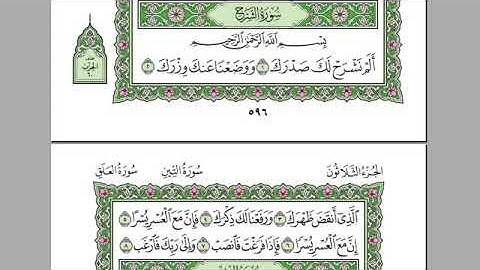 سُورَةُ الشَّرْحِ
بِسْمِ اللَّهِ الرَّحْمَٰنِ الرَّحِيمِ
أَلَمْ نَشْرَحْ لَكَ صَدْرَكَ ١ وَوَضَعْنَا عَنكَ وِزْرَكَ ٢
٥٩٦
الجُزْءُ الثَّلَاثُونَ سُورَةُ التِّينِ سُورَةُ العَلَقِ
الَّذِي أَنقَضَ ظَهْرَكَ ٣ وَرَفَعْنَا لَكَ ذِكْرَكَ ٤ فَإِنَّ مَعَ الْعُسْرِ يُسْرًا ٥
إِنَّ مَعَ الْعُسْرِ يُسْرًا ٦ فَإِذَا فَرَغْتَ فَانصَبْ ٧ وَإِلَىٰ رَبِّكَ فَارْغَب ٨